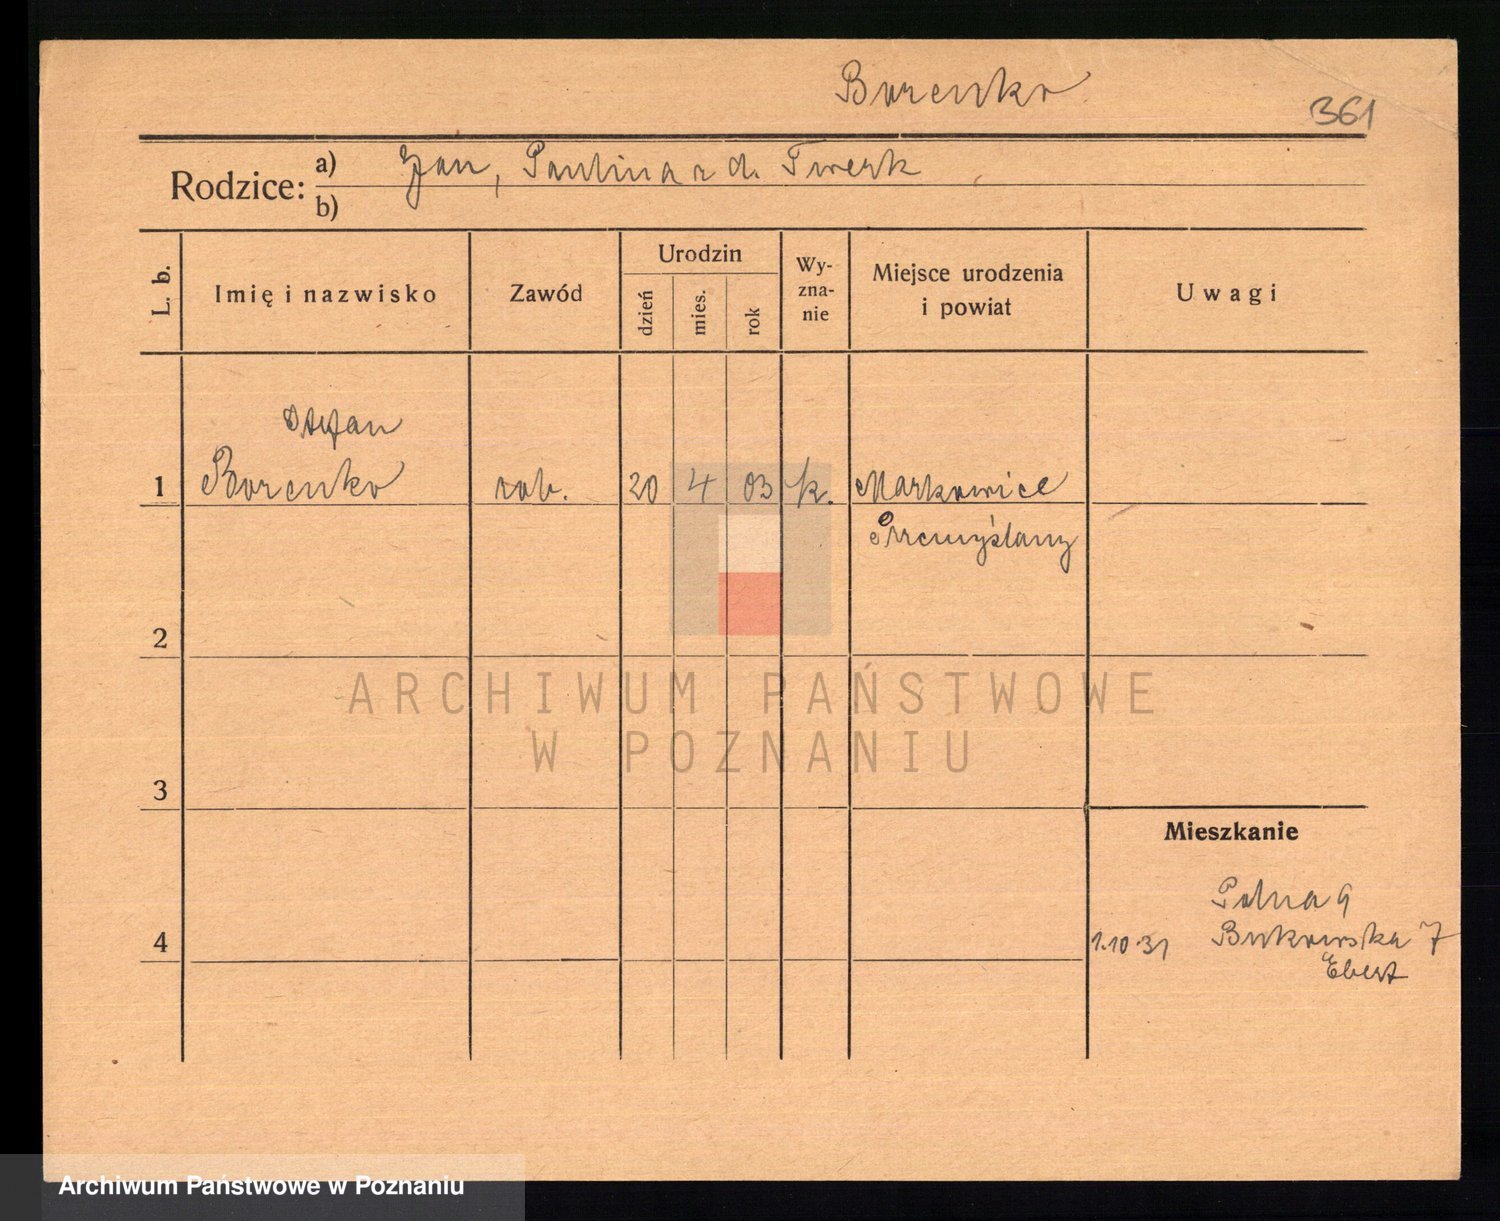 Borenko
361
Rodzice: a) Jan, Paulina z d. Twerk
b)
L. b.
Imię i nazwisko
Zawód
Urodzin
dzień
mies.
rok
Wy-
zna-
nie
Miejsce urodzenia
i powiat
Uwagi
Stefan
1 Borenko rob. 20 4 03 k. Markowice
Przemyślany
2
ARCHIWUM PAŃSTWOWE
W POZNANIU
3
Mieszkanie
Polna 9
4 1.10.31 Bukowska 7
Ebert
Archiwum Państwowe w Poznaniu